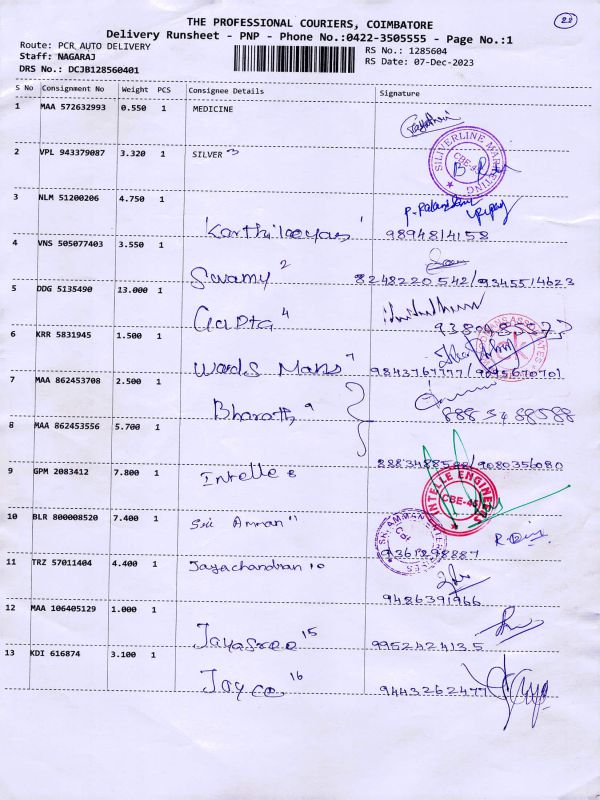 22
THE PROFESSIONAL COURIERS, COIMBATORE
Delivery Runsheet - PNP - Phone No.:0422-3505555 - Page No.:1
Route: PCR AUTO DELIVERY
RS No.: 1285604
Staff: NAGARAJ
RS Date: 07-Dec-2023
DRS No.: DCJB128560401
S No Consignment No Weight PCS Consignee Details Signature
1 MAA 572632993 0.550 1 MEDICINE
2 VPL 943379087 3.320 1 SILVER 3
SILIVERLINE MARKETING
3 NLM 51200206 4.750 1
Karthikeyan 9894814158
4 VNS 505077403 3.550 1
Swamy 2 8248220542/9345514623
5 DDG 5135490 13.000 1
Gupta 4
6 KRR 5831945 1.500 1
Words Mans 7
7 MAA 862453708 2.500 1
Bharath 9 8883488588
8 MAA 862453556 5.700 1
8883488588/9080356080
9 GPM 2083412 7.800 1
Intelle 8
INTELLE ENGINEERS
CBE-45
10 BLR 800008520 7.400 1
Sri Amman 11
11 TRZ 57011404 4.400 1
Jayachandran 10
9486391966
12 MAA 106405129 1.000 1
Jayasree 15 9952424135
13 KDI 616874 3.100 1
Jayco 16 9443262477